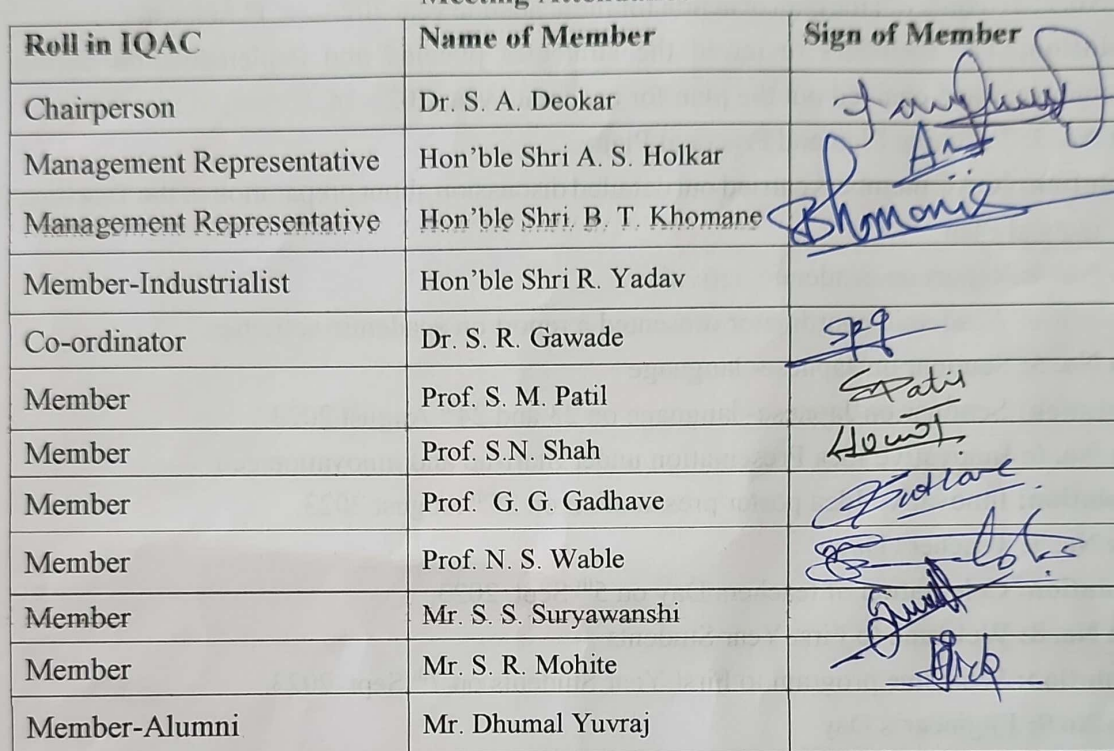 Roll in IQAC Name of Member Sign of Member
Chairperson Dr. S. A. Deokar
Management Representative Hon'ble Shri A. S. Holkar
Management Representative Hon'ble Shri. B. T. Khomane Bhomanie
Member-Industrialist Hon'ble Shri R. Yadav
Co-ordinator Dr. S. R. Gawade
Member Prof. S. M. Patil SPatil
Member Prof. S.N. Shah
Member Prof. G. G. Gadhave
Member Prof. N. S. Wable
Member Mr. S. S. Suryawanshi
Member Mr. S. R. Mohite
Member-Alumni Mr. Dhumal Yuvraj